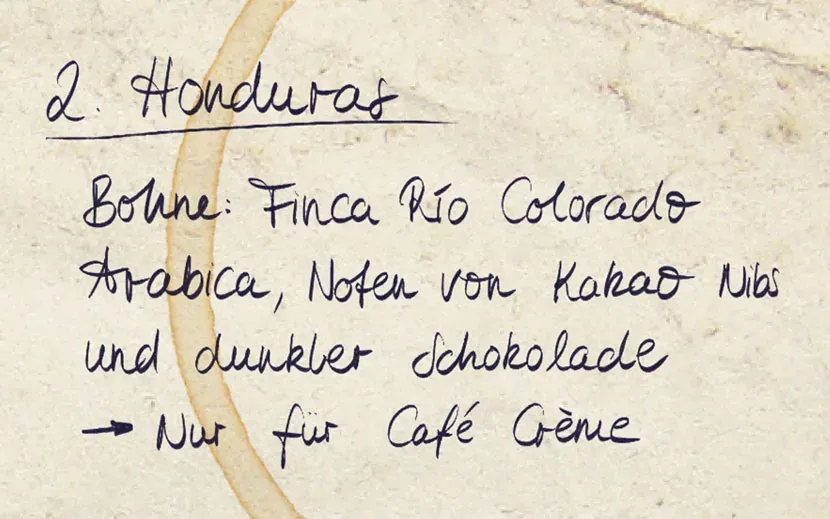 2. Honduras
Bohne: Finca Río Colorado
Arabica, Noten von Kakao Nibs
und dunkler Schokolade
→ Nur für Café Crème